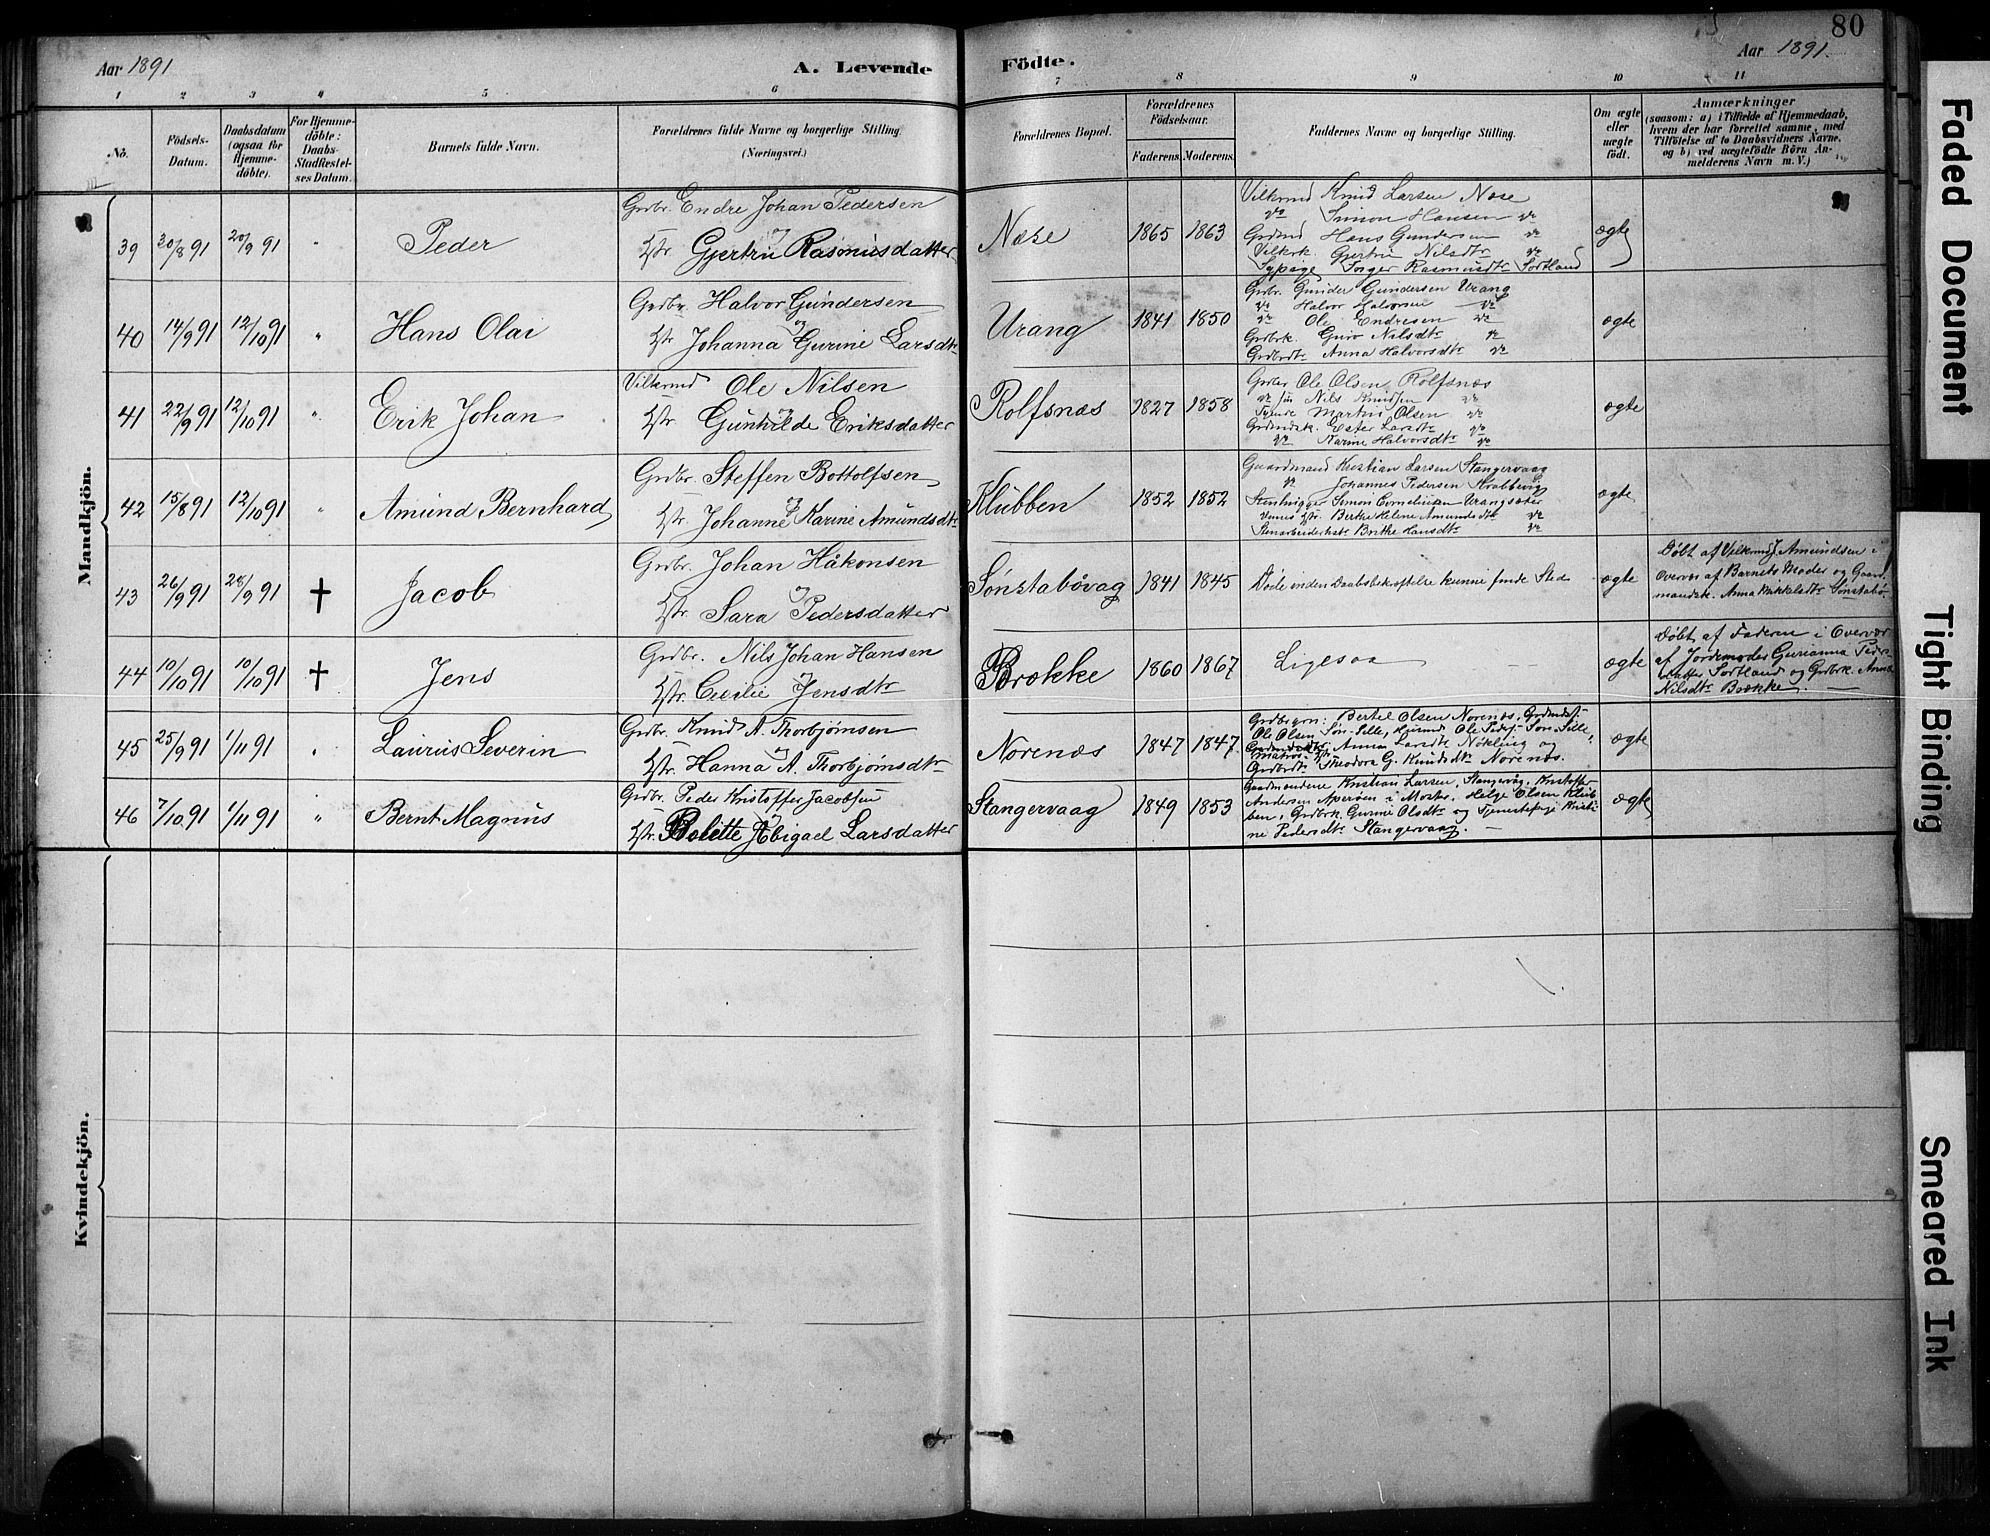 80
Aar 1891
A. Levende
Födte.
Aar 1891.
1 2 3 4 5 6 7 8 9 10 11
No.
Födsels-
Datum.
Daabsdatum
(ogsaa for
Hjemme-
döbte).
For Hjemme-
döbte:
Daabs-
Stadfæstel-
ses Datum.
Barnets fulde Navn.
Forældrenes fulde Navne og borgerlige Stilling.
(Næringsvei.)
Forældrenes Bopæl.
Forældrenes
Födselsaar.
Faderens.
Moderens.
Faddernes Navne og borgerlige Stilling.
Om ægte
eller
uægte
födt.
Anmærkninger
(saasom: a) i Tilfælde af Hjemmedaab,
hvem der har forrettet samme, med
Tilföielse af to Daabsvidners Navne,
og b) ved uægtefödte Börn An-
melderens Navn m. V.)
Mandkjön.
39 20/8 91 20/9 91 " Peder
Grdbr. Endre Johan Pedersen
og
Hstr. Gjertrú Rasmusdatter
Næse 1865 1863
Vilkrmd Knud Larsen Næse
do Simon Hansen do
Grdmd Hans Gundersen do
Vilkrk. Gjertrú Nilsdtr do
Sypige Inger Rasmusdtr Sortland
ægte
40 14/9 91 12/10 91 " Hans Olai
Grdbr. Halvor Gundersen
og
Hstr Johanna Gurine Larsdtr
Urang 1841 1850
Grdbr. Gunder Gundersen Urang
do Halvor Halvorsen do
do Ole Endresen do
Grdbrk. Guro Nilsdtr do
Grdbrdtr Anna Halvorsdtr do
ægte
41 22/9 91 12/10 91 " Erik Johan
Vilkrmd Ole Nilsen
og
Hstr. Gunhilde Eriksdatter
Rolfsnæs 1827 1858
Grdbr Ole Olsen Rolfsnæs
do søn Nils Knudsen do
Martin Olsen do
Grdmdsk. Ester Larsdtr do
do Karine Halvorsdtr do
ægte
42 15/8 91 12/10 91 " Amund Bernhard
Grdbr. Steffen Bottolfsen
og
Hstr. Johanne Karine Amundsdtr
Klubben 1852 1852
Gaardmand Kristian Larsen Stangervaag
do Johannes Pedersen
Stenhugger Simon Cornelius Urangsæter
Hstr. Berte Helene Amundsdtr do
Stenarbeiderksk Brithe Hansdtr do
ægte
43 26/9 91 28/9 91 † Jacob
Grdbr. Johan Håkonsen
og
Hstr. Sara Pedersdatter
Sønstabøvag 1841 1845
Døde inden Daabsbekræftelse kunne finde Sted
ægte
Døbt af Vilkrmd J. Amundsen i
Overvær af Barnets Moder og Gaard
mandsk. Anna Mikkelsdtr Sønstabø.
44 10/10 91 10/10 91 † Jens
Grdbr. Nils Johan Hansen
og
Hstr. Cecilie Jensdtr
Brække 1860 1867
Ligesaa
ægte
Døbt af Faderen i Overvær
af Jordemoder Gurianna Peders
datter Sortland og Grdbrk. Anna
Nilsdtr Brække.
45 25/9 91 1/11 91 " Laurus Severin
Grdbr. Knud A. Thorbjørnsen
og
Hstr. Hanna A. Thorbjørnsdtr
Norenæs 1847 1847
Grdbrgrn: Bertel Olsen Norenæs,
Ole Olsen Søn-Sille, Ole Peders. Søn-Sille,
Anna Larsdtr Nøkling og
Grdbrdtr Theodora G. Knudsdtr Norenæs.
ægte
46 7/10 91 1/11 91 " Bernt Magnus
Grdbr. Peder Kristoffer Jacobsen
og
Hstr. Bolette Abigael Larsdatter
Stangervaag 1849 1853
Gaardmændene Kristian Larsen, Stangervåg, Kristoffer
Andersen Aperøen i Moster, Helge Olsen Klub
ben, Grdbrk. Gurine Olsdtr og Tjenestepige Kristi-
ne Pedersdtr Stangervaag.
ægte
Kvindekjön.
Faded Document
Tight Binding
Smeared Ink